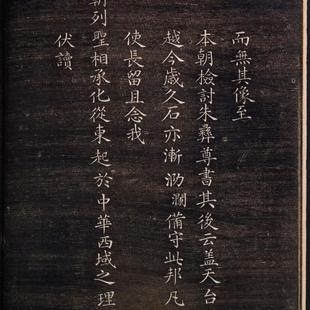 而無其像至
本朝檢討朱彝尊書其後云蓋天台
越今歲久石亦漸泐瀾備守此邦凡
使長留且念我
朝列聖相承化從東起於中華西域之理
伏讀